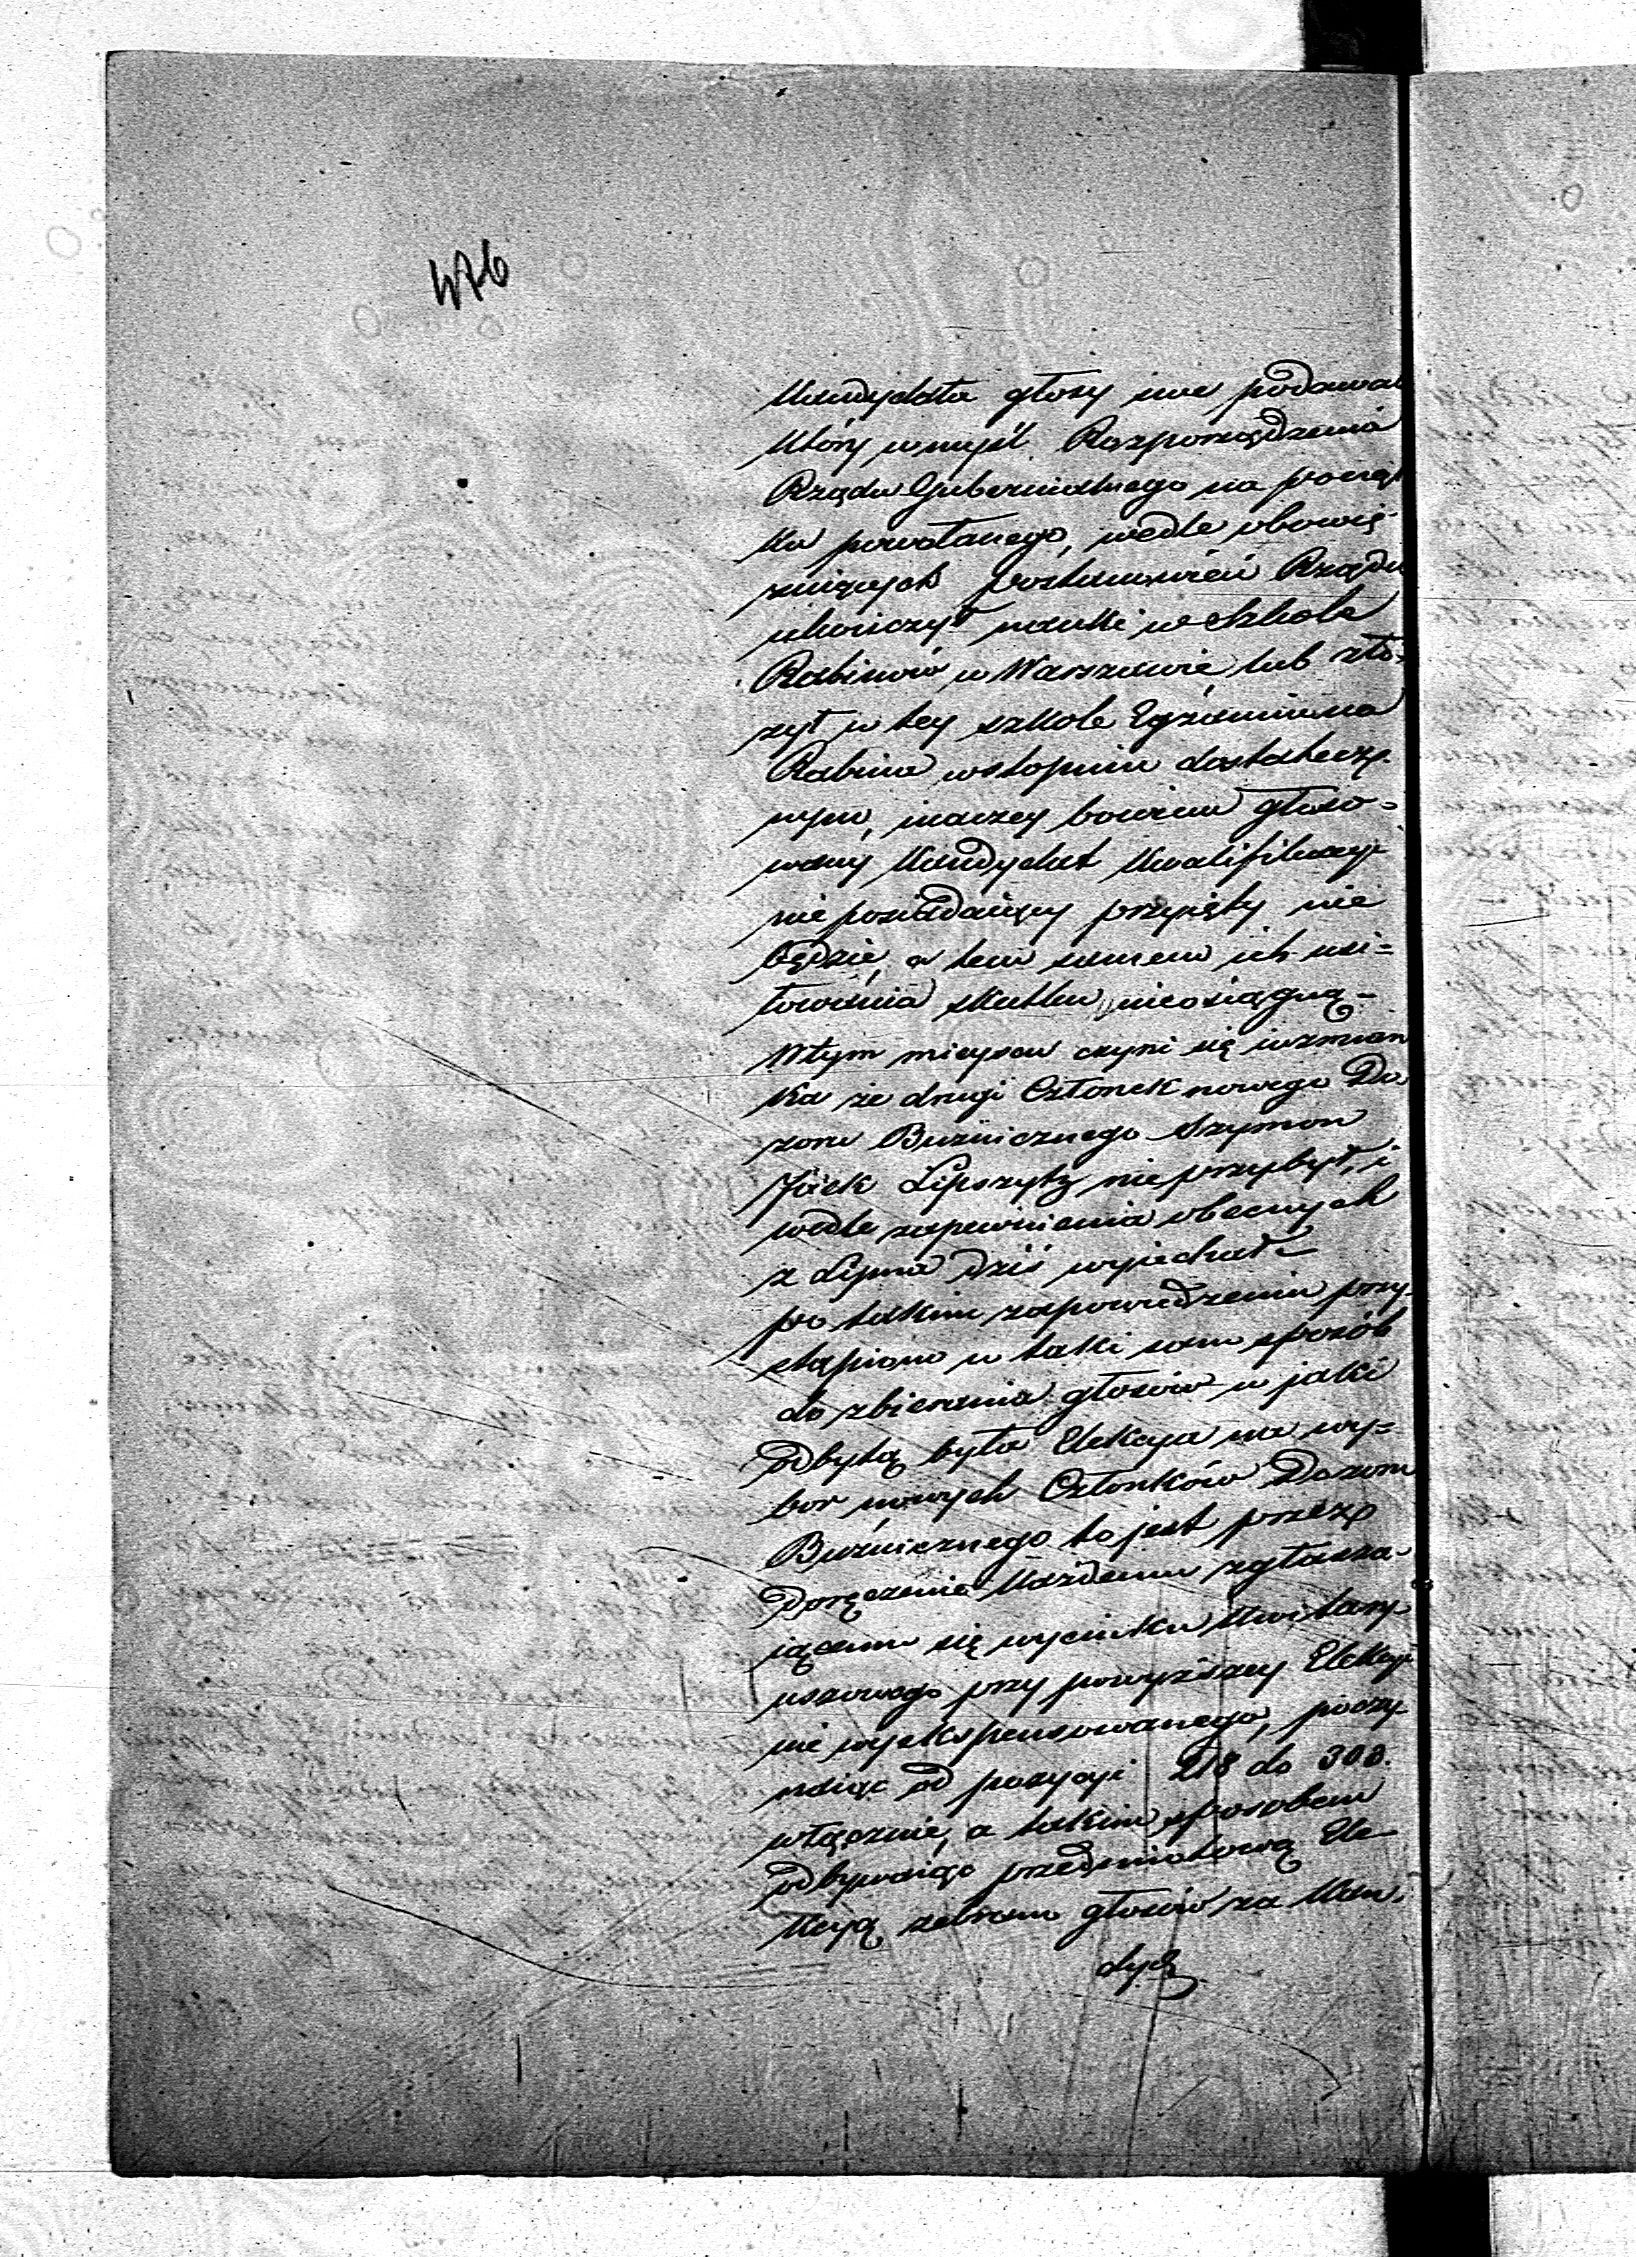 476
Kandydata głosy swe podawał
który w myśl Rozporządzenia
Rządu Gubernialnego na począt
ku powołanego, wedle obowią
zuiących postanowień Rządu
ukończył nauki w Szkole
Rabinów w Warszawie lub zło-
zył w tey szkole Egzamin na
Rabina w stopniu dostatecz-
nym, inaczey bowiem głoso-
wany Kandydat Kwalifikacyi
nie posiadaiący przyięty nie
będzie, a tem samem ich usi-
łowania skutku nie osiągną -
W tym mieyscu czyni się wzmian
ka że drugi Członek nowego Do
zoru Bużniczego Szymon
Jcek Lipszytz nie przybył, i
wedle zapewnienia obecnych
z Lipna dziś wyiechał -
po takim zapowiedzeniu przy-
stąpiono w taki sam sposób
do zbierania głosów w jaki
odbytą była Elekcya na wy-
bor nowych Członków Dozoru
Bużnicznego to jest przez
doręczenie każdemu zgłasza-
iącemu się wycinku kwitary-
uszowego przy powyższey Elekcyi
nie wyekspensowanego, poczy-
naiąc od pozycyi 218 do 300.
włącznie, a takim sposobem
odbywaiąc przedmiotową Ele-
kcyą zebrano głosów za Kan-
dyd